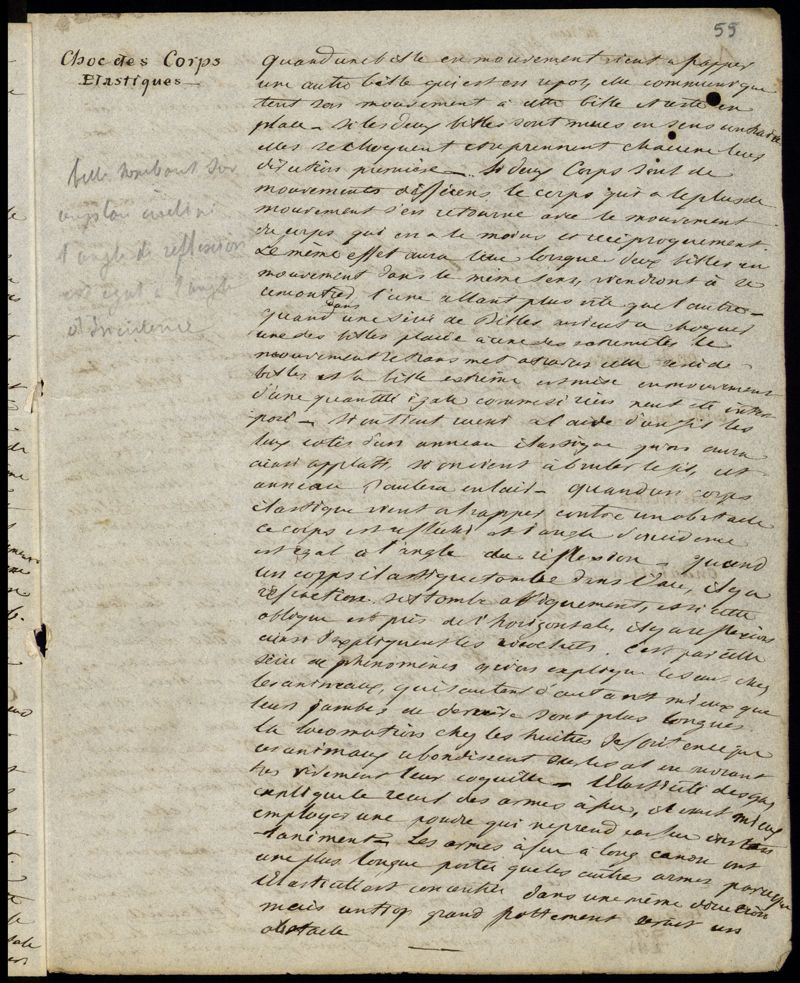 55
Choc des Corps
Elastiques
bille tombant sur
un plan incliné
l'angle de reflexion
est egal a l'angle
d'incidence
quand une bille en mouvement vient a frapper
une autre bille qui est en repos, elle communique
tout son mouvement à cette bille et reste en
place - si les deux billes sont mues en sens contraire
elles se choquent et reprennent chacune leur
direction première - Si deux Corps sont de
mouvements différens le corps qui a le plus de
mouvement s'en retourne avec le mouvement
du corps qui en a le moins et réciproquement.
Le même effet aura lieu lorsque deux billes en
mouvement dans le même sens, viendront à se
rencontrer, l'une allant plus vite que l'autre -
quand dans une série de Billes on vient a choquer
une des billes placée a une des extremités le
mouvement se transmet a travers cette serie de
billes et la bille extrême est mise en mouvement
d'une quantité égale comme si rien n'eut été inter
posé - si on tient réuni a l'aide d'un fil les
deux cotés d'un anneau élastique qu'on aura
ainsi applati, si on vient à bruler le fil, cet
anneau sautera en l'air - quand un corps
élastique vient a frapper contre un obstacle
ce corps est réfléchi et l'angle d'incidence
est égal à l'angle de réflexion - quand
un corps élastique tombe dans l'eau, il y a
réfraction s'il tombe obliquement, et si cette
oblique est près de l'horizontale, il y a reflexion
ainsi s'expliquent les ricochets. C'est par cette
série de phénomènes qu'on explique le saut chez
les animaux, qui sautent d'autant mieux que
leurs jambes de derrière sont plus longues
la locomotion chez les huitres se fait en ce que
ces animaux abondissent sur les
très vivement leur coquille - l'Elasticité des gaz
explique le recul des armes a feu, il vaut mieux
employer une poudre qui ne prend pas feu instan
tanément - Les armes à feu a long canon ont
une plus longue portée que les autres armes parceque
l'Elasticité est concentrée dans une même direction
mais un trop grand frottement serait un
obstacle